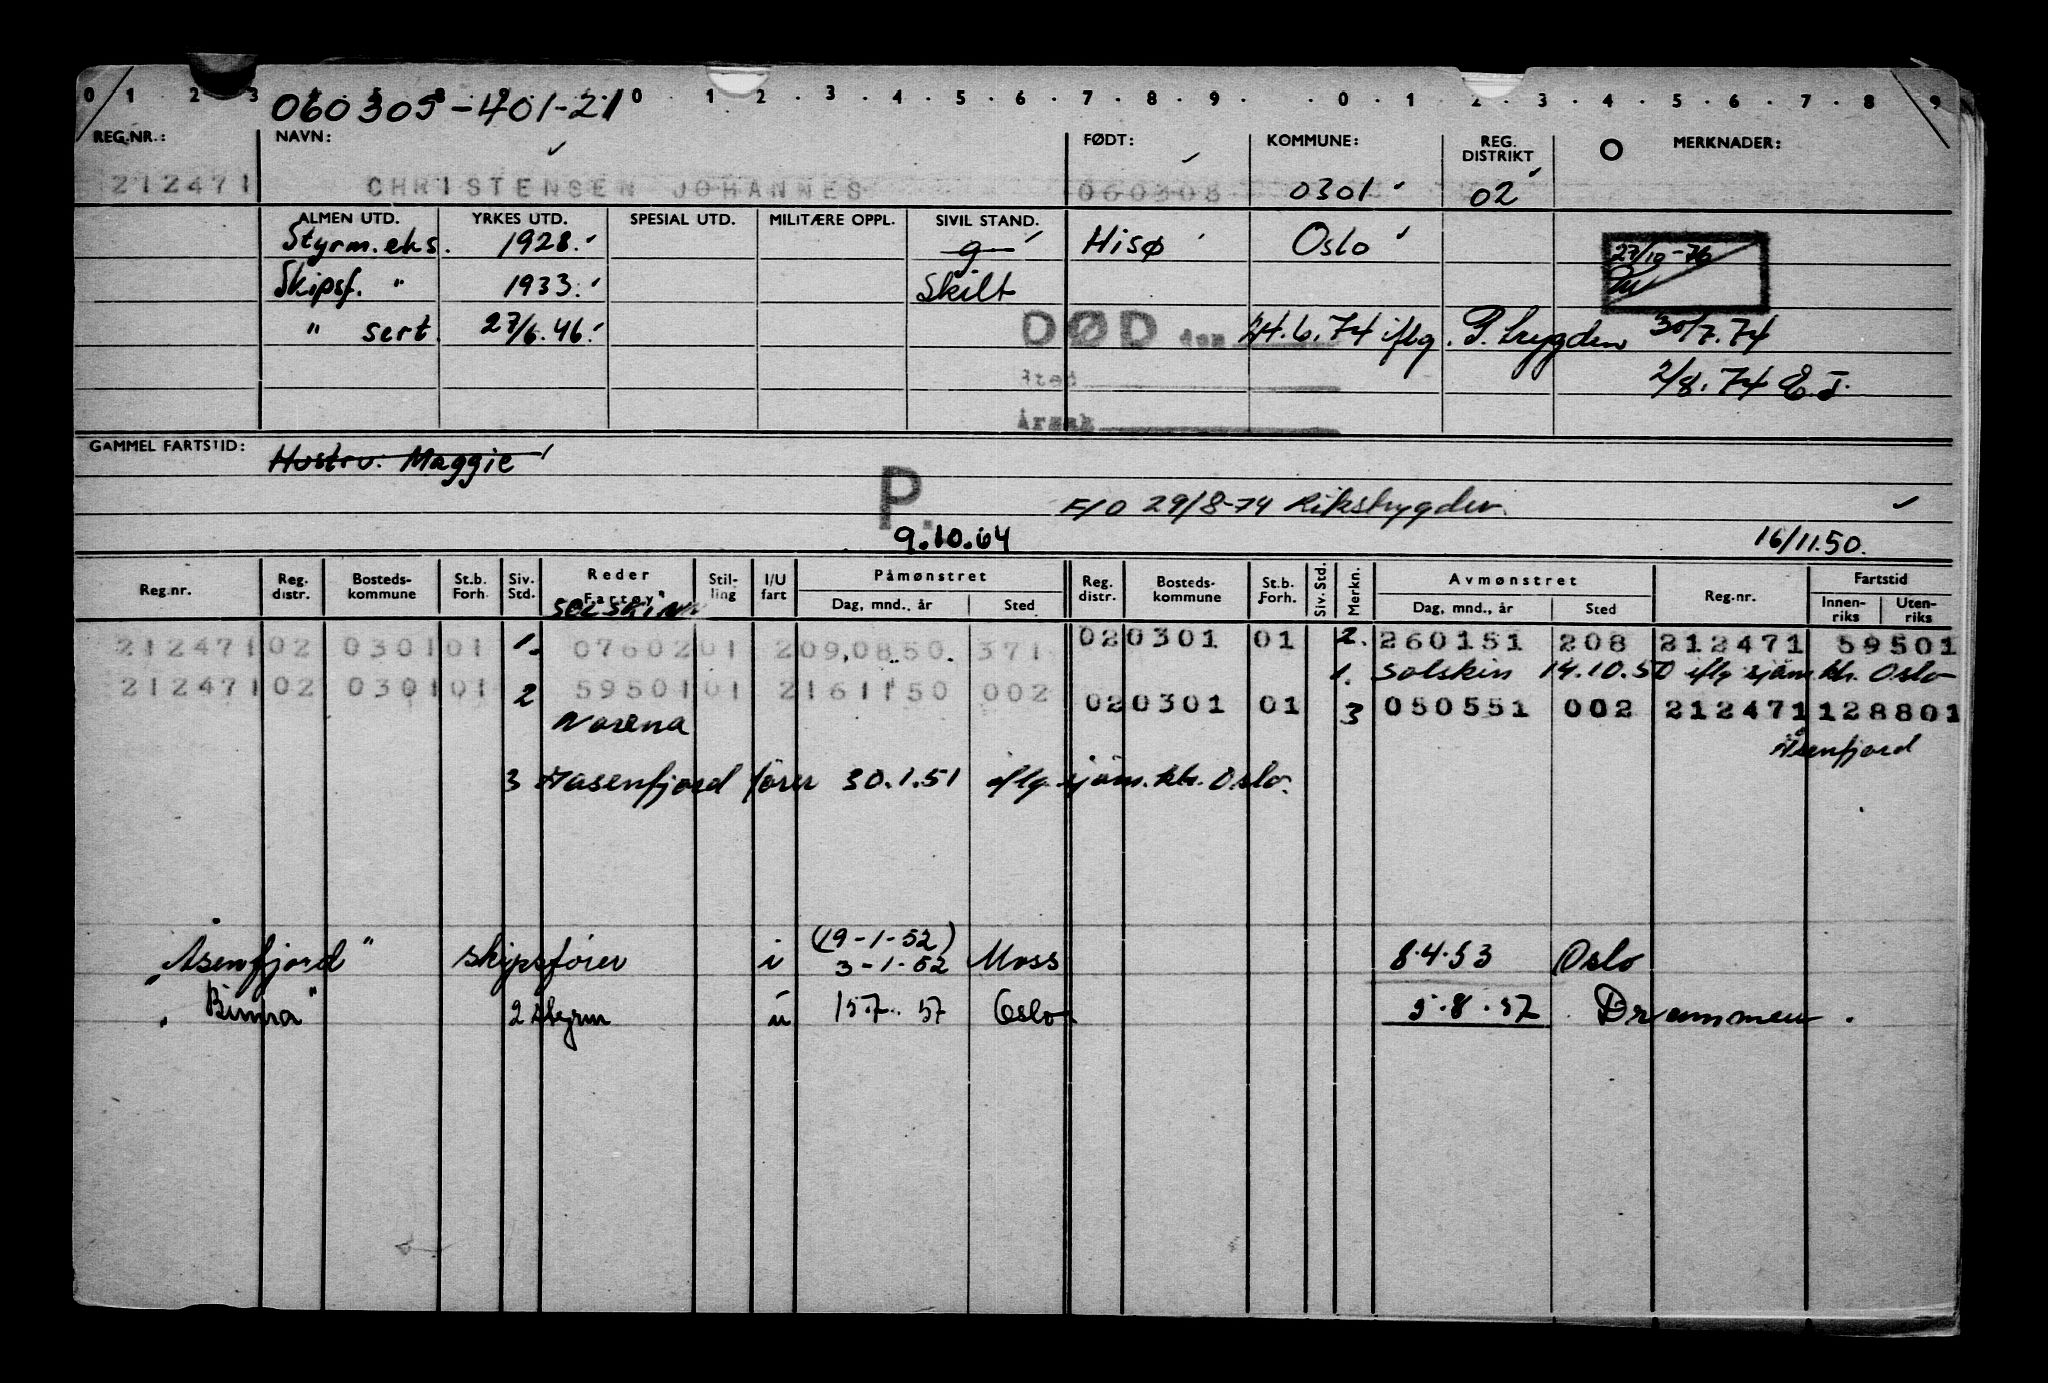 0 1 2 3 0 1 2 3 4 5 6 7 8 9 0 1 2 3 4 5 6 7 8 9
060305-401-21
REG.NR.: NAVN: FØDT: KOMMUNE: REG. DISTRIKT MERKNADER:
212471 CHRISTENSEN JOHANNES 060308 0301 02
ALMEN UTD. YRKES UTD. SPESIAL UTD. MILITÆRE OPPL. SIVIL STAND.
Styrm.eks. 1928. g Hisø Oslo 27/10-76
Skipsf. " 1933. Skilt
" sert. 27/6.46. DØD den 24.6.74 iflg. P. trygden 30/7.74
Sted 2/8.74 E.J.
Årsak
GAMMEL FARTSTID: Hustru: Maggie
P. F/O 29/8-74 Rikstrygden.
9.10.64 16/11.50.
Reg.nr. Reg. distr. Bosteds- kommune St.b. Forh. Siv. Std. Reder Fartøy Stil- ling I/U fart Påmønstret Dag, mnd., år Sted Reg. distr. Bosteds- kommune St.b. Forh. Siv. Std. Merkn. Avmønstret Dag, mnd., år Sted Reg.nr. Fartstid Innen- riks Uten- riks
SOLSKIN
212471 02 0301 01 1. 07602 01 2 09.08.50. 371 02 0301 01 2. 260151 208 212471 59501
1. Solskin 14.10.50 iflg sjøm.ktr. Oslo
212471 02 0301 01 2 59501 01 2 161150 002 02 0301 01 3 050551 002 212471 128801
Norena Åsenfjord
3 Aasenfjord fører 30.1.51 iflg. sjøm.ktr. Oslo.
"Åsenfjord" skipsfører i (19-1-52) 3-1-52 Moss 8.4.53 Oslo
"Bimra" 2 styrm u 15.7.57 Oslo 5.8.57 Drammen.